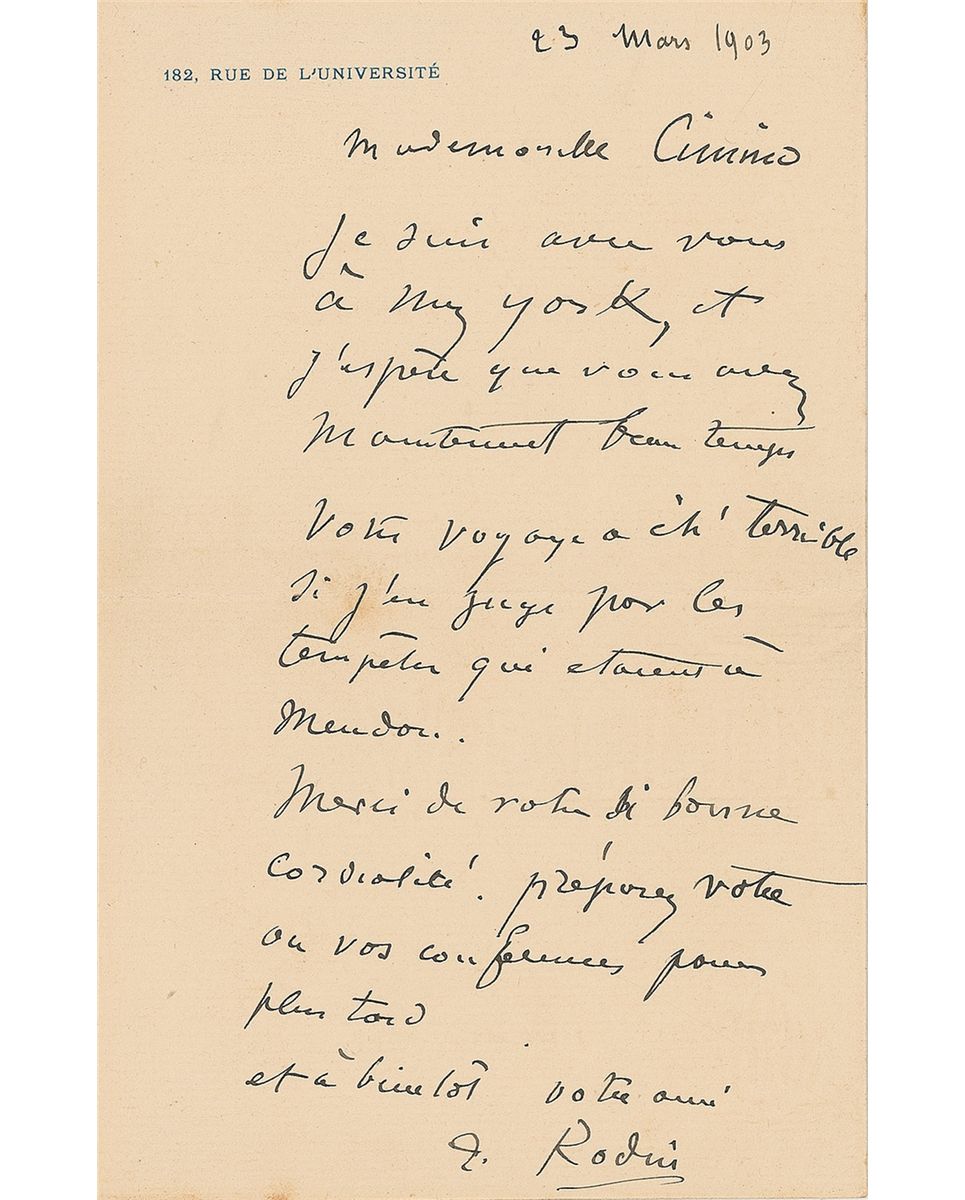 23 Mars 1903
182, RUE DE L'UNIVERSITÉ
Mademoiselle Cimino
Je suis avec vous
à New york, et
j'espère que vous avez
Maintenant beau temps
Votre voyage a été terrible
si j'en juge par les
tempêtes qui etaient à
Meudon.
Merci de votre si bonne
cordialité. préparez votre
ou vos conférences pour
plus tard
et à bientôt votre ami
A. Rodin